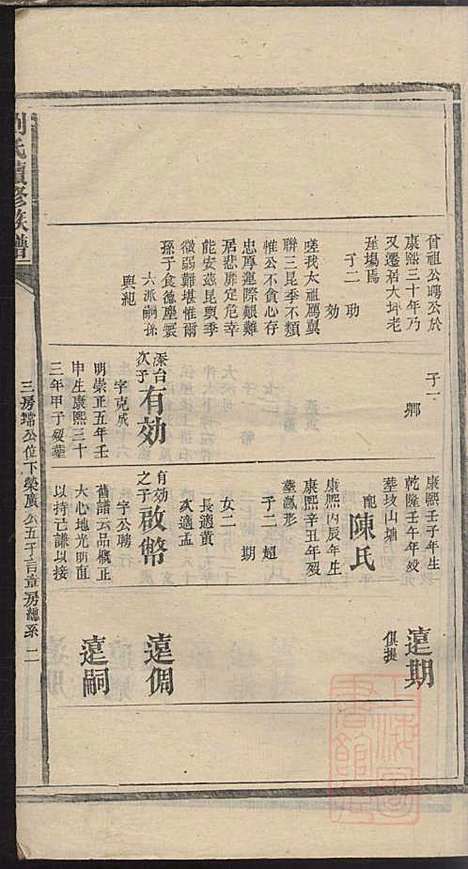 劉氏續修族譜
曾祖公聘公於
康熙三十年乃
又遷居大坪老
子二 功
效
嗟我太祖篤冀
聯三昆季不類
惟公不貪心存
忠厚運際艱難
居悲靡定危幸
能安茲昆輿季
微弱難堪惟爾
孫子食德
六派嗣孫
子一 鄉
次子
有効
字克成
明崇正五年壬
申生康熙三十
三年甲子歿葬
康熙壬子年生
乾隆壬午年歿
葬坟山塘
配
陳氏
康熙丙辰年生
康熙辛丑年歿
葬瓢形
子二 超
期
女二
長適黃
次適孟
有効
之子
啟幣
字公聘
舊譜云品概正
大心地光明直
以持己謙以接
遠期
俱撫
遠倜
遠嗣
三房 公位下榮廣公五子言章房總系 二